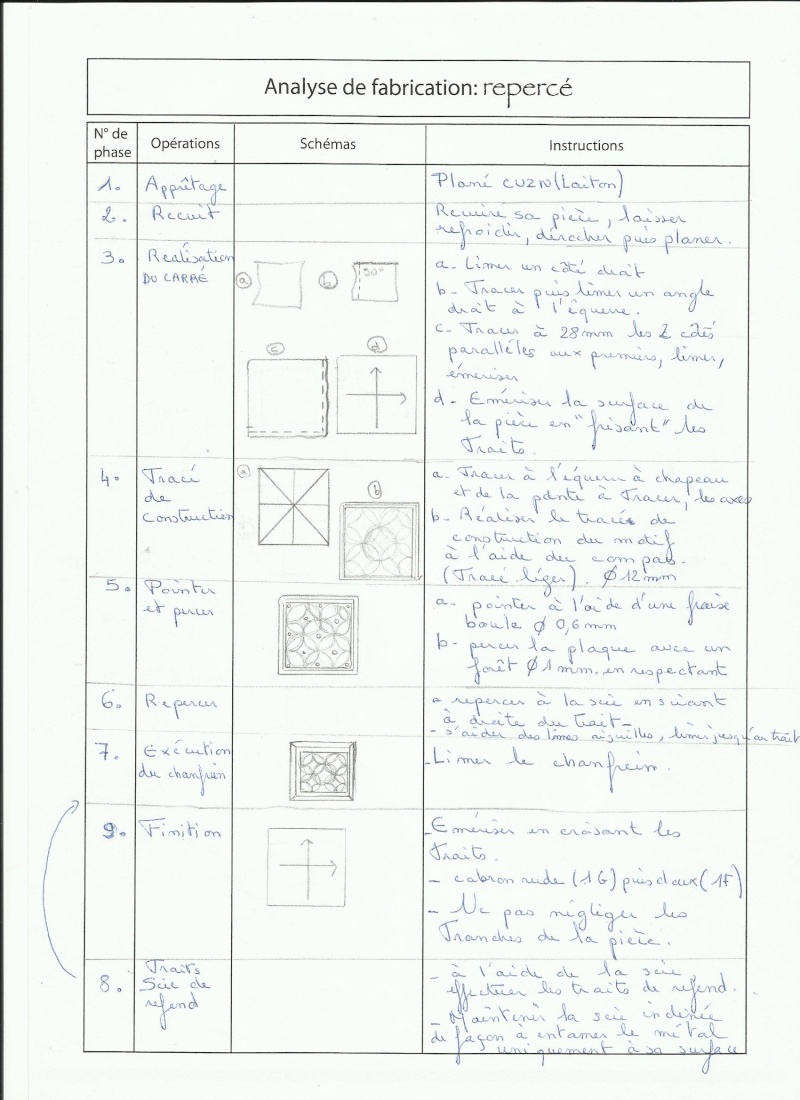 Analyse de fabrication: repercé
N° de phase Opérations Schémas Instructions
1. Apprêtage Plané CUZN (Laiton)
2. Recuit Recuire sa pièce, laisser
refroidir, dérocher puis planer.
3. Réalisation
DU CARRÉ
a b 90°
c d
a- Limer un côté droit
b- Tracer puis limer un angle
droit à l'équerre.
c- Tracer à 28mm les 2 côtés
parallèles aux premiers, limer,
émeriser
d- Emériser la surface de
la pièce en "frisant" les
Traits.
4. Tracé
de
construction
a b
a- Tracer à l'équerre à chapeau
et de la pointe à Tracer, les axes
b- Réaliser le tracés de
construction du motif
à l'aide du compas.
(Tracé léger). Ø 12mm
5. Pointer
et percer
a- pointer à l'aide d'une fraise
boule Ø 0,6mm
b- percer la plaque avec un
forêt Ø 1mm. en respectant
6. Repercer
- repercer à la scie en suivant
à droite du Trait-
- s'aider des limes aiguilles, limer jusqu'au trait
7. Exécution
du chanfrein
-Limer le chanfrein.
9. Finition
-Emériser en croisant les
Traits.
- cabron rude (1G) puis doux (1F)
- Ne pas négliger les
Tranches de la pièce.
8. Traits
Scie de
refend
- à l'aide de la scie,
effectuer les traits de refend.
- Maintenir la scie inclinée
de façon à entamer le métal
uniquement à sa surface